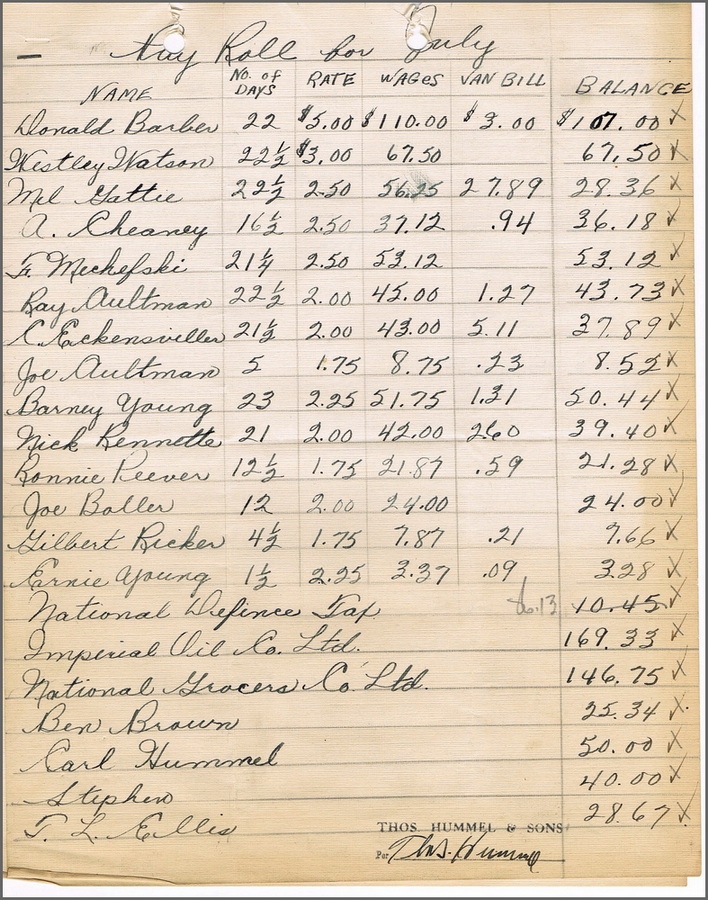 Pay Roll for July
NAME NO. OF DAYS RATE WAGES VAN BILL BALANCE
Donald Barber 22 $5.00 $110.00 $3.00 $107.00 X
Westley Watson 22½ $3.00 67.50 67.50 X
Mel Gattie 22½ 2.50 56.25 27.89 28.36 X
A. Cheaney 16½ 2.50 37.12 .94 36.18 X
F. Mechefski 21¼ 2.50 53.12 53.12 X
Ray Aultman 22½ 2.00 45.00 1.27 43.73 X
C. Eckensviller 21½ 2.00 43.00 5.11 37.89 X
Joe Aultman 5 1.75 8.75 .23 8.52 X
Barney Young 23 2.25 51.75 1.31 50.44 X
Nick Kennette 21 2.00 42.00 2.60 39.40 X
Ronnie Peever 12½ 1.75 21.87 .59 21.28 X
Joe Boller 12 2.00 24.00 24.00 X
Gilbert Ricker 4½ 1.75 7.87 .21 7.66 X
Ernie Young 1½ 2.25 3.37 .09 3.28 X
National Defince Tax 10.45 X
Imperial Oil Co. Ltd. 169.33 X
National Grocers Co. Ltd. 146.75 X
Ben Brown 25.34 X
Carl Hummel 50.00 X
Stephen 40.00 X
T. L. Ellis 28.67 X
THOS. HUMMEL & SONS
Per Thos. Hummel